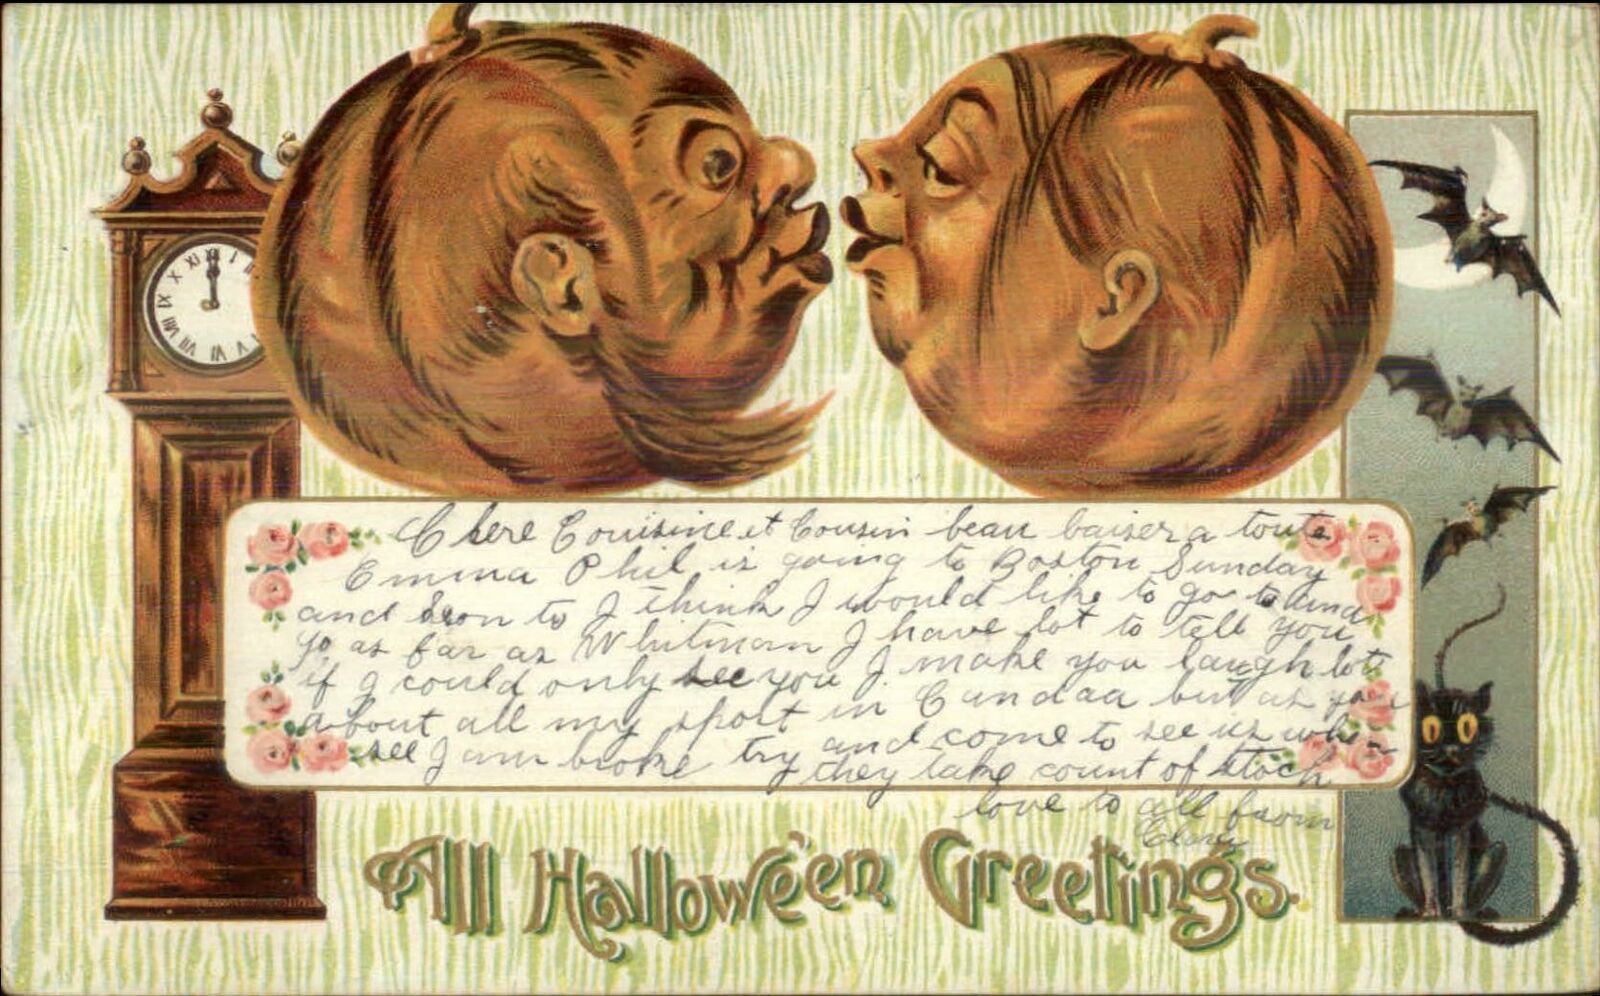 XI XII I II
X
IX
VIII VII VI V
Chere Couisine et Cousin beau baiser a toute
Emma Phil is going to Boston Sunday
and soon to I think I would like to go to and
go as far as Whitman I have lot to tell you
if I could only see you I make you laugh lots
about all my sport in Candaa but as you
see I am broke try and come to see us when
they take count of stock
love to all from
All Hallowe'en Greetings.